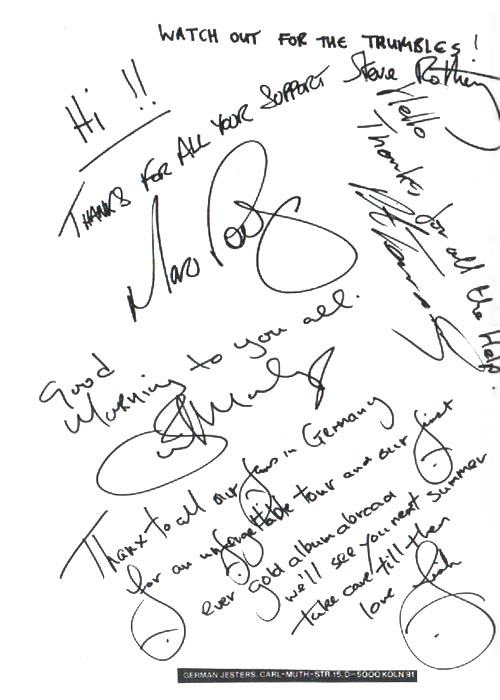 WATCH OUT FOR THE TRUMBLES!
Steve Rothery
Hi !!
THANKS FOR ALL YOUR SUPPORT
Hello
Thanks for all the Help.
Good
Morning to you all.
Thanx to all our fans in Germany
for an unforgettable tour and our first
ever gold album abroad
we'll see you next summer
take care till then
love Fish
GERMAN JESTERS. CARL-MUTH-STR. 15. D-5000 KÖLN 91